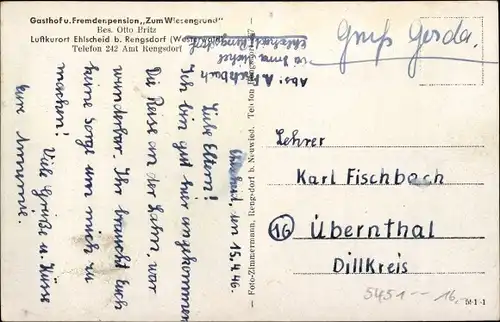 Gasthof u. Fremdenpension „Zum Wiesengrund"
Bes. Otto Britz
Luftkurort Ehlscheid b. Rengsdorf (Westerwald)
Telefon 242 Amt Rengsdorf
Gruß Gerda.
Abs: A. Fischbach
Ehlscheid, den 15.4.46.
Liebe Eltern!
Ich bin gut hier angekommen
Die Reise an der Lahn, war
wunderbar. Ihr braucht Euch
keine Sorge um mich zu
machen!
Viele Grüße u. Küsse
Eure Annemie.
Foto-Zimmermann, Rengsdorf b. Neuwied.
Lehrer
Karl Fischbach
16 Übernthal
Dillkreis
5451 16